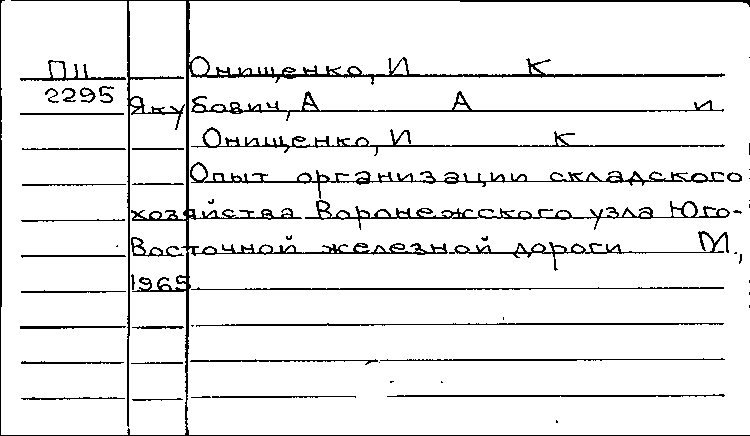 П11 Онищенко, И К
2295 Якубович, А А и
Онищенко, И К
Опыт организации складского
хозяйства Воронежского узла Юго-
Восточной железной дороги М.,
1965.